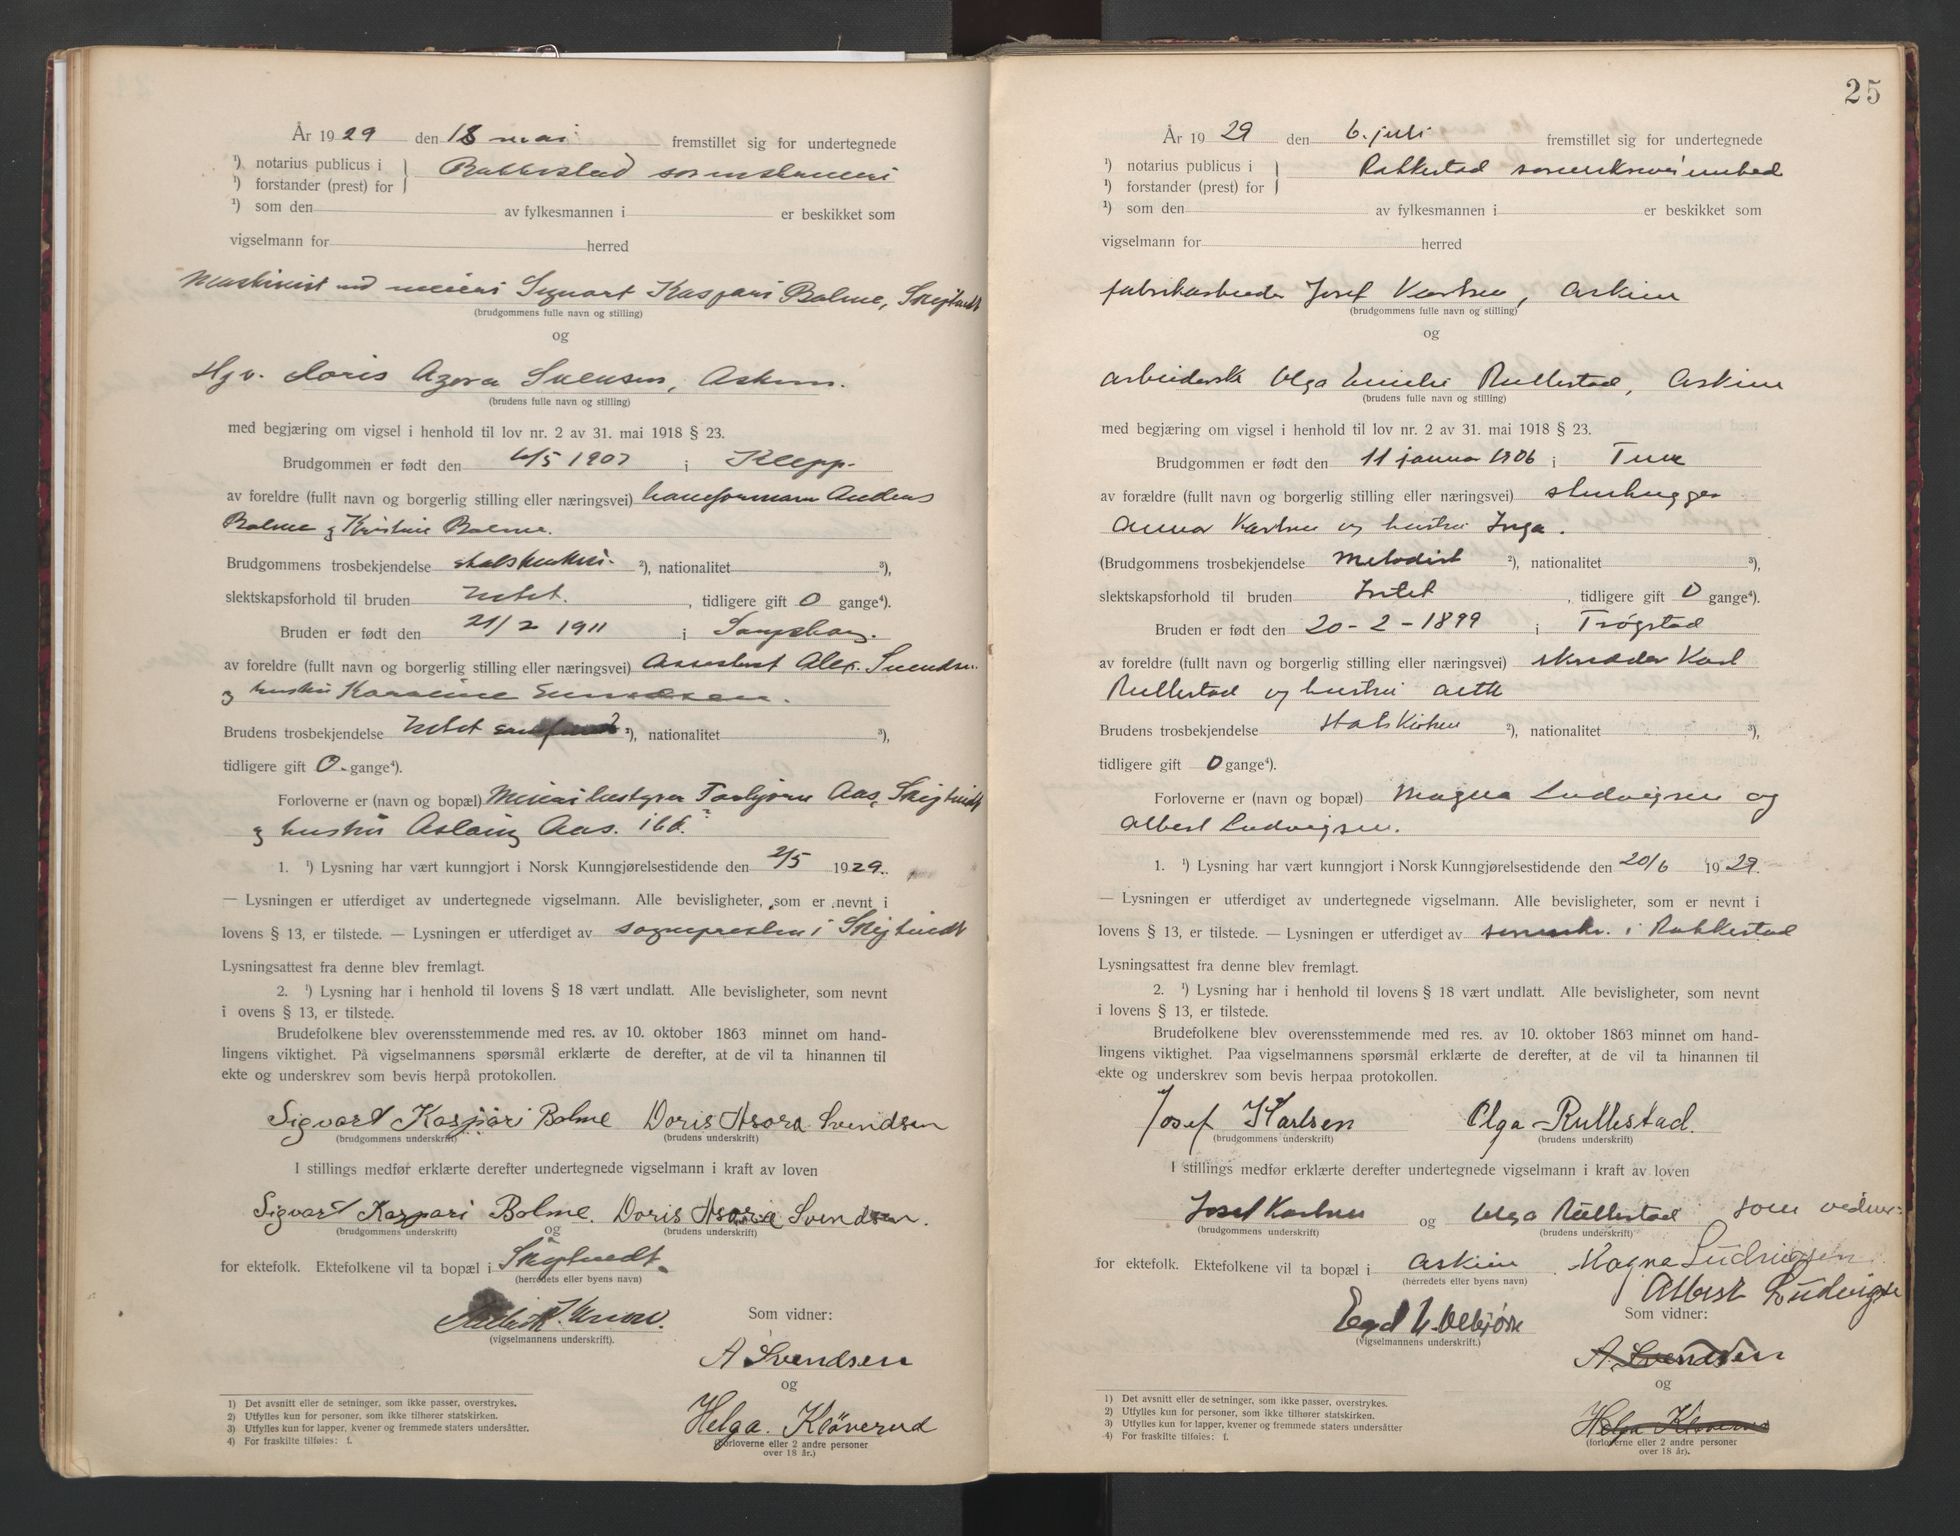 År 1929 den 18 mai fremstillet sig for undertegnede
¹) notarius publicus i Rakkestad sorenskriveri
¹) forstander (prest) for
¹) som den av fylkesmannen i er beskikket som
vigselmann for herred
Maskinist ved meieri Sigvart Kaspari Bolme, Skiptvedt
(brudgommens fulle navn og stilling)
og
Hgv. Doris Azora Svensen, Askim.
(brudens fulle navn og stilling)
med begjæring om vigsel i henhold til lov nr. 2 av 31. mai 1918 § 23.
Brudgommen er født den 6/5 1907 i Klepp.
av foreldre (fullt navn og borgerlig stilling eller næringsvei) Anders
Bolme og Kristine Bolme.
Brudgommens trosbekjendelse statskirken ²), nationalitet ³),
slektskapsforhold til bruden Intet. , tidligere gift 0 gange⁴).
Bruden er født den 21/2 1911 i Sarpsborg.
av foreldre (fullt navn og borgerlig stilling eller næringsvei) Alex. Svendsen
og hustru Karoline Svendsen.
Brudens trosbekjendelse Intet ²), nationalitet ³),
tidligere gift 0 gange⁴).
Forloverne er (navn og bopæl) Meieribestyrer Torbjørn Aas, Skiptvedt
og hustru Aslaug Aas. ibd.
1. ¹) Lysning har vært kunngjort i Norsk Kunngjørelsestidende den 2/5 1929.
— Lysningen er utferdiget av undertegnede vigselmann. Alle bevisligheter, som er nevnt i
lovens § 13, er tilstede. — Lysningen er utferdiget av sognepresten i Skiptvedt
Lysningsattest fra denne blev fremlagt.
2. ¹) Lysning har i henhold til lovens § 18 vært undlatt. Alle bevisligheter, som nevnt
i ovens § 13, er tilstede.
Brudefolkene blev overensstemmende med res. av 10. oktober 1863 minnet om hand-
lingens viktighet. På vigselmannens spørsmål erklærte de derefter, at de vil ta hinannen til
ekte og underskrev som bevis herpå protokollen.
Sigvart Kaspari Bolme Doris Asora Svendsen
(brudgommens underskrift) (brudens underskrift)
I stillings medfør erklærte derefter undertegnede vigselmann i kraft av loven
Sigvart Kaspari Bolme. Doris Asora Svendsen.
(brudgommens underskrift) og (brudens underskrift)
for ektefolk. Ektefolkene vil ta bopæl i Skiptvedt.
(herredets eller byens navn)
Som vidner:
(vigselmannens underskrift).
A Svendsen
og
Helga. Kløverud
(forloverne eller 2 andre personer
over 18 år.)
1) Det avsnitt eller de setninger, som ikke passer, overstrykes.
2) Utfylles kun for personer, som ikke tilhører statskirken.
3) Utfylles kun for lapper, kvener og fremmede staters undersåtter.
4) For fraskilte tilføies: f.
25
År 1929 den 6. juli fremstillet sig for undertegnede
¹) notarius publicus i Rakkestad sorenskriverembed
¹) forstander (prest) for
¹) som den av fylkesmannen i er beskikket som
vigselmann for herred
fabrikarbeider Josef Karlsen, Askim
(brudgommens fulle navn og stilling)
og
arbeiderske Olga Emilie Rullestad, Askim
(brudens fulle navn og stilling)
med begjæring om vigsel i henhold til lov nr. 2 av 31. mai 1918 § 23.
Brudgommen er født den 11 januar 1906 i Tune
av forældre (fullt navn og borgerlig stilling eller næringsvei) stenhugger
Karlsen og hustru Inga.
(Brudgommens trosbekjendelse Metodist ²), nationalitet ³),
slektskapsforhold til bruden Intet , tidligere gift 0 gange⁴).
Bruden er født den 20-2-1899 i Trøgstad
av foreldre (fullt navn og borgerlig stilling eller næringsvei) skrædder Karl
Rullestad og hustru
Brudens trosbekjendelse Statskirken ²), nationalitet ³),
tidligere gift 0 gange⁴).
Forloverne er (navn og bopæl) Magna Ludvigsen og
Albert Ludvigsen.
1. ¹) Lysning har vært kunngjort i Norsk Kunngjørelsestidende den 20/6 1929.
— Lysningen er utferdiget av undertegnede vigselmann. Alle bevisligheter, som er nevnt i
lovens § 13, er tilstede. — Lysningen er utferdiget av sorenskr. i Rakkestad
Lysningsattest fra denne blev fremlagt.
2. ¹) Lysning har i henhold til lovens § 18 vært undlatt. Alle bevisligheter, som nevnt
i lovens § 13, er tilstede.
Brudefolkene blev overensstemmende med res. av 10. oktober 1863 minnet om hand-
lingens viktighet. Paa vigselmannens spørsmål erklærte de derefter, at de vil ta hinannen til
ekte og underskrev som bevis herpaa protokollen.
Josef Karlsen Olga Rullestad.
(brudgommens underskrift) (brudens underskrift)
I stillings medfør erklærte derefter undertegnede vigselmann i kraft av loven
Josef Karlsen og Olga Rullestad som vidner:
(brudgommens underskrift) (brudens underskrift)
for ektefolk. Ektefolkene vil ta bopæl i Askim . Magna Ludvigsen
(herredets eller byens navn) Albert Ludvigse
Som vidner:
(vigselmannens underskrift.)
A. Svendsen
og
Helga Kløverud
(forloverne eller 2 andre personer
over 18 år).
1) Det avsnitt eller de setninger, som ikke passer, overstrykes.
2) Utfylles kun for personer, som ikke tilhører statskirken.
3) Utfylles kun for lapper, kvener og fremmede staters undersåtter
4) For fraskilte tilføies: f.